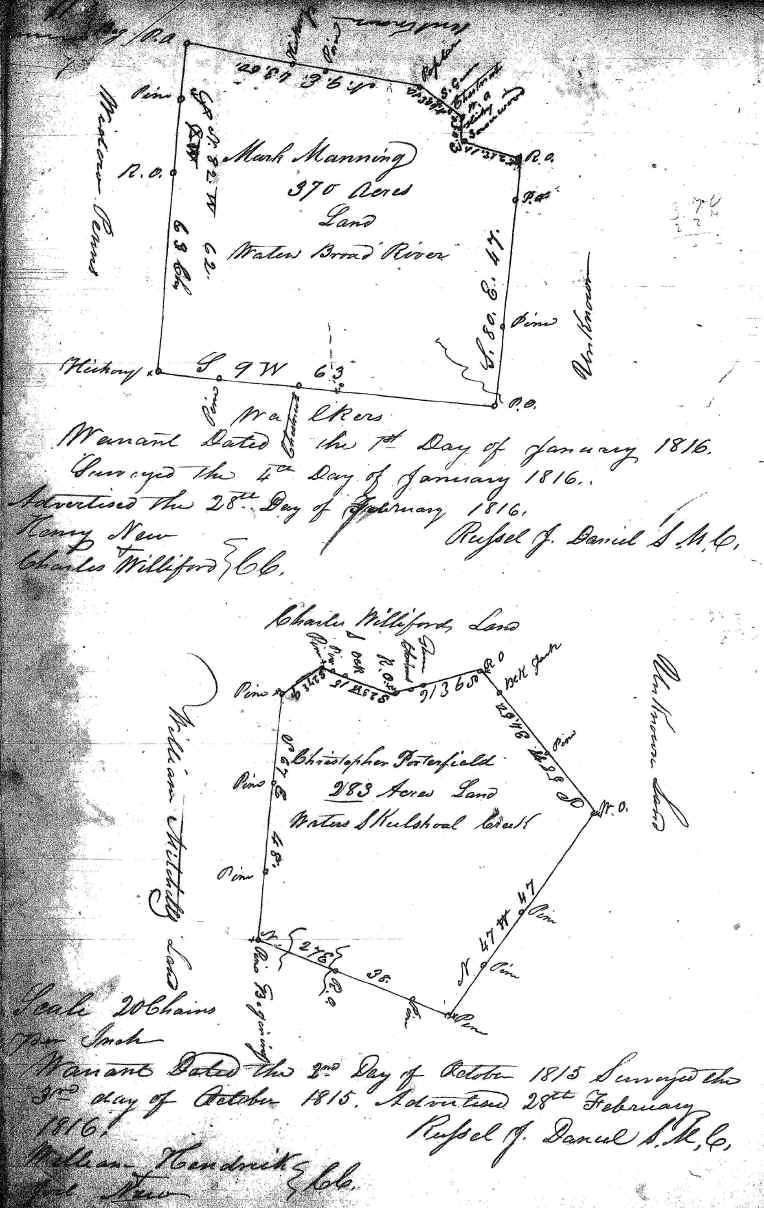 P.O.
Hickory
Pine
Unknown
Pine
N. 9. E. 43.50.
Poplar
S. Gum
Chestnut
R.O.
R.O.
Mark Manning
370 Acres
Land
Waters Broad River
N. 82. W 62.
63 Ch
Penns
S. 80. E. 47.
Pine
Unknown
Hickory
S 9 W 63
Pine
Chestnut
P.O.
Walkers
Warrant Dated the 1st Day of January 1816.
Surveyed the 4th Day of January 1816..
Advertised the 28th Day of February 1816.
Henry New
Charles Williford } CC.
Russel J. Daniel S. M. C.
Charles Willifords Land
Pine
Pine
R.O.
Chesnut
RO
Blk Jack
Pine
Unknown Land
William Mitchells Land
Pine
Pine
Pine
S 67 E 48.
Christopher Porterfield
283 Acres Land
Waters Skulshoal Creek
W.O.
N 47 W 47
Pine
Pine
Pine
Pine
38.
27 E
R.O
Pine Begining
Scale 20 Chains
per Inch
Warrant Dated the 2nd Day of October 1815 Surveyed the
3rd day of October 1815. Advertised 28th February
1816.
Russel J. Daniel S. M. C,
William Hendrick
Joel New } CC.